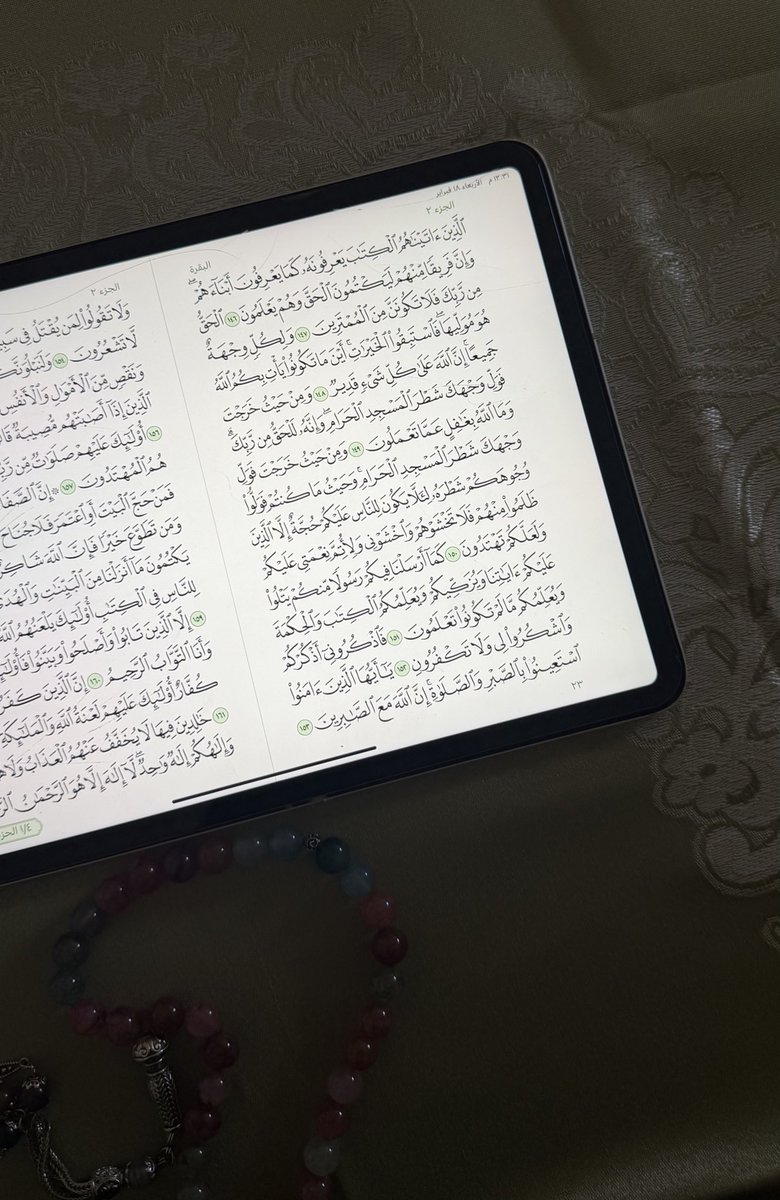 ١٢:٣١ م الأربعاء ١٨ فبراير
الجزء ٢
ٱلَّذِينَ ءَاتَيْنَٰهُمُ ٱلْكِتَٰبَ يَعْرِفُونَهُۥ كَمَا يَعْرِفُونَ أَبْنَآءَهُمْ ۖ
وَإِنَّ فَرِيقًا مِّنْهُمْ لَيَكْتُمُونَ ٱلْحَقَّ وَهُمْ يَعْلَمُونَ ١٤٦ ٱلْحَقُّ
مِن رَّبِّكَ فَلَا تَكُونَنَّ مِنَ ٱلْمُمْتَرِينَ ١٤٧ وَلِكُلٍّ وِجْهَةٌ
هُوَ مُوَلِّيهَا ۖ فَٱسْتَبِقُوا۟ ٱلْخَيْرَٰتِ ۚ أَيْنَ مَا تَكُونُوا۟ يَأْتِ بِكُمُ ٱللَّهُ
جَمِيعًا ۚ إِنَّ ٱللَّهَ عَلَىٰ كُلِّ شَىْءٍ قَدِيرٌ ١٤٨ وَمِنْ حَيْثُ خَرَجْتَ
فَوَلِّ وَجْهَكَ شَطْرَ ٱلْمَسْجِدِ ٱلْحَرَامِ ۖ وَإِنَّهُۥ لَلْحَقُّ مِن رَّبِّكَ ۗ
وَمَا ٱللَّهُ بِغَٰفِلٍ عَمَّا تَعْمَلُونَ ١٤٩ وَمِنْ حَيْثُ خَرَجْتَ فَوَلِّ
وَجْهَكَ شَطْرَ ٱلْمَسْجِدِ ٱلْحَرَامِ ۚ وَحَيْثُ مَا كُنتُمْ فَوَلُّوا۟
وُجُوهَكُمْ شَطْرَهُۥ لِئَلَّا يَكُونَ لِلنَّاسِ عَلَيْكُمْ حُجَّةٌ إِلَّا ٱلَّذِينَ
ظَلَمُوا۟ مِنْهُمْ فَلَا تَخْشَوْهُمْ وَٱخْشَوْنِى وَلِأُتِمَّ نِعْمَتِى عَلَيْكُمْ
وَلَعَلَّكُمْ تَهْتَدُونَ ١٥٠ كَمَآ أَرْسَلْنَا فِيكُمْ رَسُولًا مِّنكُمْ يَتْلُوا۟
عَلَيْكُمْ ءَايَٰتِنَا وَيُزَكِّيكُمْ وَيُعَلِّمُكُمُ ٱلْكِتَٰبَ وَٱلْحِكْمَةَ
وَيُعَلِّمُكُم مَّا لَمْ تَكُونُوا۟ تَعْلَمُونَ ١٥١ فَٱذْكُرُونِىٓ أَذْكُرْكُمْ
وَٱشْكُرُوا۟ لِى وَلَا تَكْفُرُونِ ١٥٢ يَٰٓأَيُّهَا ٱلَّذِينَ ءَامَنُوا۟
ٱسْتَعِينُوا۟ بِٱلصَّبْرِ وَٱلصَّلَوٰةِ ۚ إِنَّ ٱللَّهَ مَعَ ٱلصَّٰبِرِينَ ١٥٣
٢٣
البقرة
الجزء ٢
وَلَا تَقُولُوا۟ لِمَن يُقْتَلُ فِى
لَّا تَشْعُرُونَ ١٥٤
وَنَقْصٍ مِّنَ ٱلْأَمْوَٰلِ وَٱلْأَنفُسِ
ٱلَّذِينَ إِذَآ أَصَٰبَتْهُم مُّصِيبَةٌ
١٥٦ أُو۟لَٰٓئِكَ عَلَيْهِمْ صَلَوَٰتٌ مِّن
هُمُ ٱلْمُهْتَدُونَ ١٥٧ ۞ إِنَّ ٱلصَّفَا
فَمَنْ حَجَّ ٱلْبَيْتَ أَوِ ٱعْتَمَرَ فَلَا جُنَاحَ
وَمَن تَطَوَّعَ خَيْرًا فَإِنَّ ٱللَّهَ
يَكْتُمُونَ مَآ أَنزَلْنَا مِنَ ٱلْبَيِّنَٰتِ
لِلنَّاسِ فِى ٱلْكِتَٰبِ أُو۟لَٰٓئِكَ يَلْعَنُهُمُ ٱللَّهُ
١٥٩ إِلَّا ٱلَّذِينَ تَابُوا۟ وَأَصْلَحُوا۟ وَبَيَّنُوا۟
وَأَنَا ٱلتَّوَّابُ ٱلرَّحِيمُ ١٦٠ إِنَّ ٱلَّذِينَ
كُفَّارٌ أُو۟لَٰٓئِكَ عَلَيْهِمْ لَعْنَةُ ٱللَّهِ وَٱلْمَلَٰٓئِكَةِ
١٦١ خَٰلِدِينَ فِيهَا لَا يُخَفَّفُ عَنْهُمُ ٱلْعَذَابُ
وَإِلَٰهُكُمْ إِلَٰهٌ وَٰحِدٌ ۖ لَّآ إِلَٰهَ إِلَّا هُوَ ٱلرَّحْمَٰنُ
١/٤